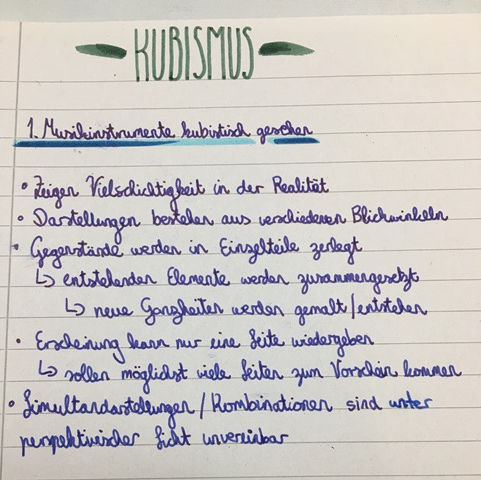 KUBISMUS
1. Musikinstrumente kubistisch gesehen
• Zeigen Vielschichtigkeit in der Realität
• Darstellungen bestehen aus verschiedenen Blickwinkeln
• Gegenstände werden in Einzelteile zerlegt
↳ entstehenden Elemente werden zusammengesetzt
↳ neue Ganzheiten werden gemalt/entstehen
• Erscheinung kann nur eine Seite wiedergeben
↳ sollen möglichst viele Seiten zum Vorschein kommen
• Simultandarstellungen/Kombinationen sind unter
perspektivischer Sicht unvereinbar